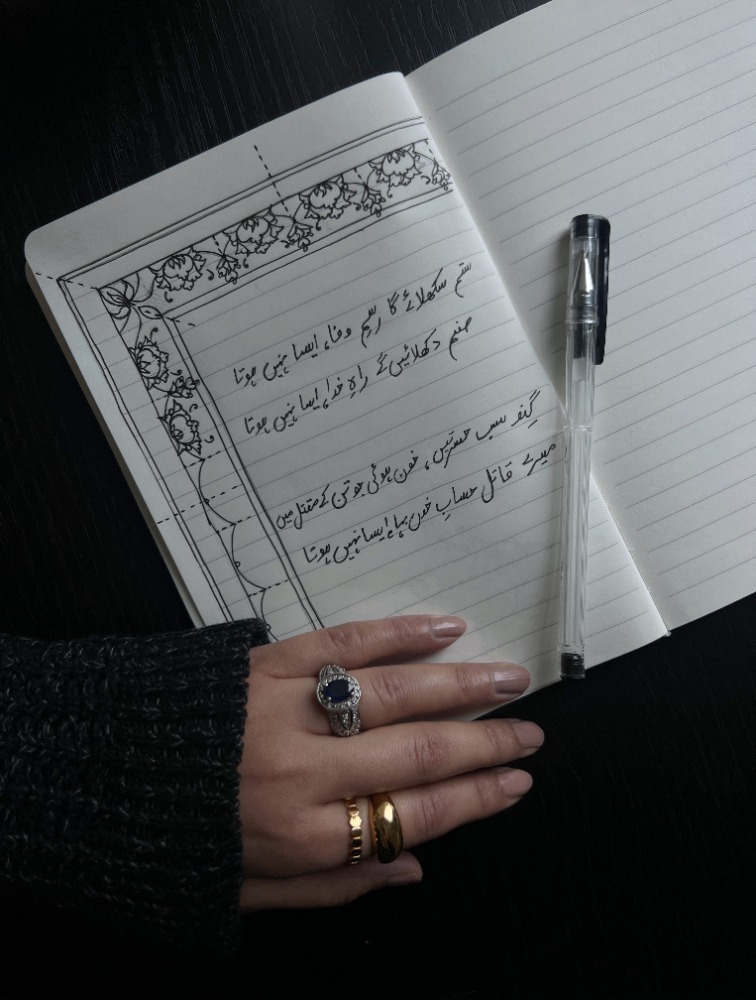 ستم سکھلائے گا رسمِ وفا، ایسا نہیں ہوتا
صنم دکھلائیں گے راہِ خدا، ایسا نہیں ہوتا
گِنو سب حسرتیں، خون ہوئی جو تن کے مقتل میں
میرے قاتل حسابِ خون بہا، ایسا نہیں ہوتا